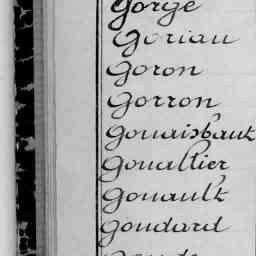 Gorge
Goriau
Goron
Gorron
Gouaisbault
Goualtier
Gouault
Goudard